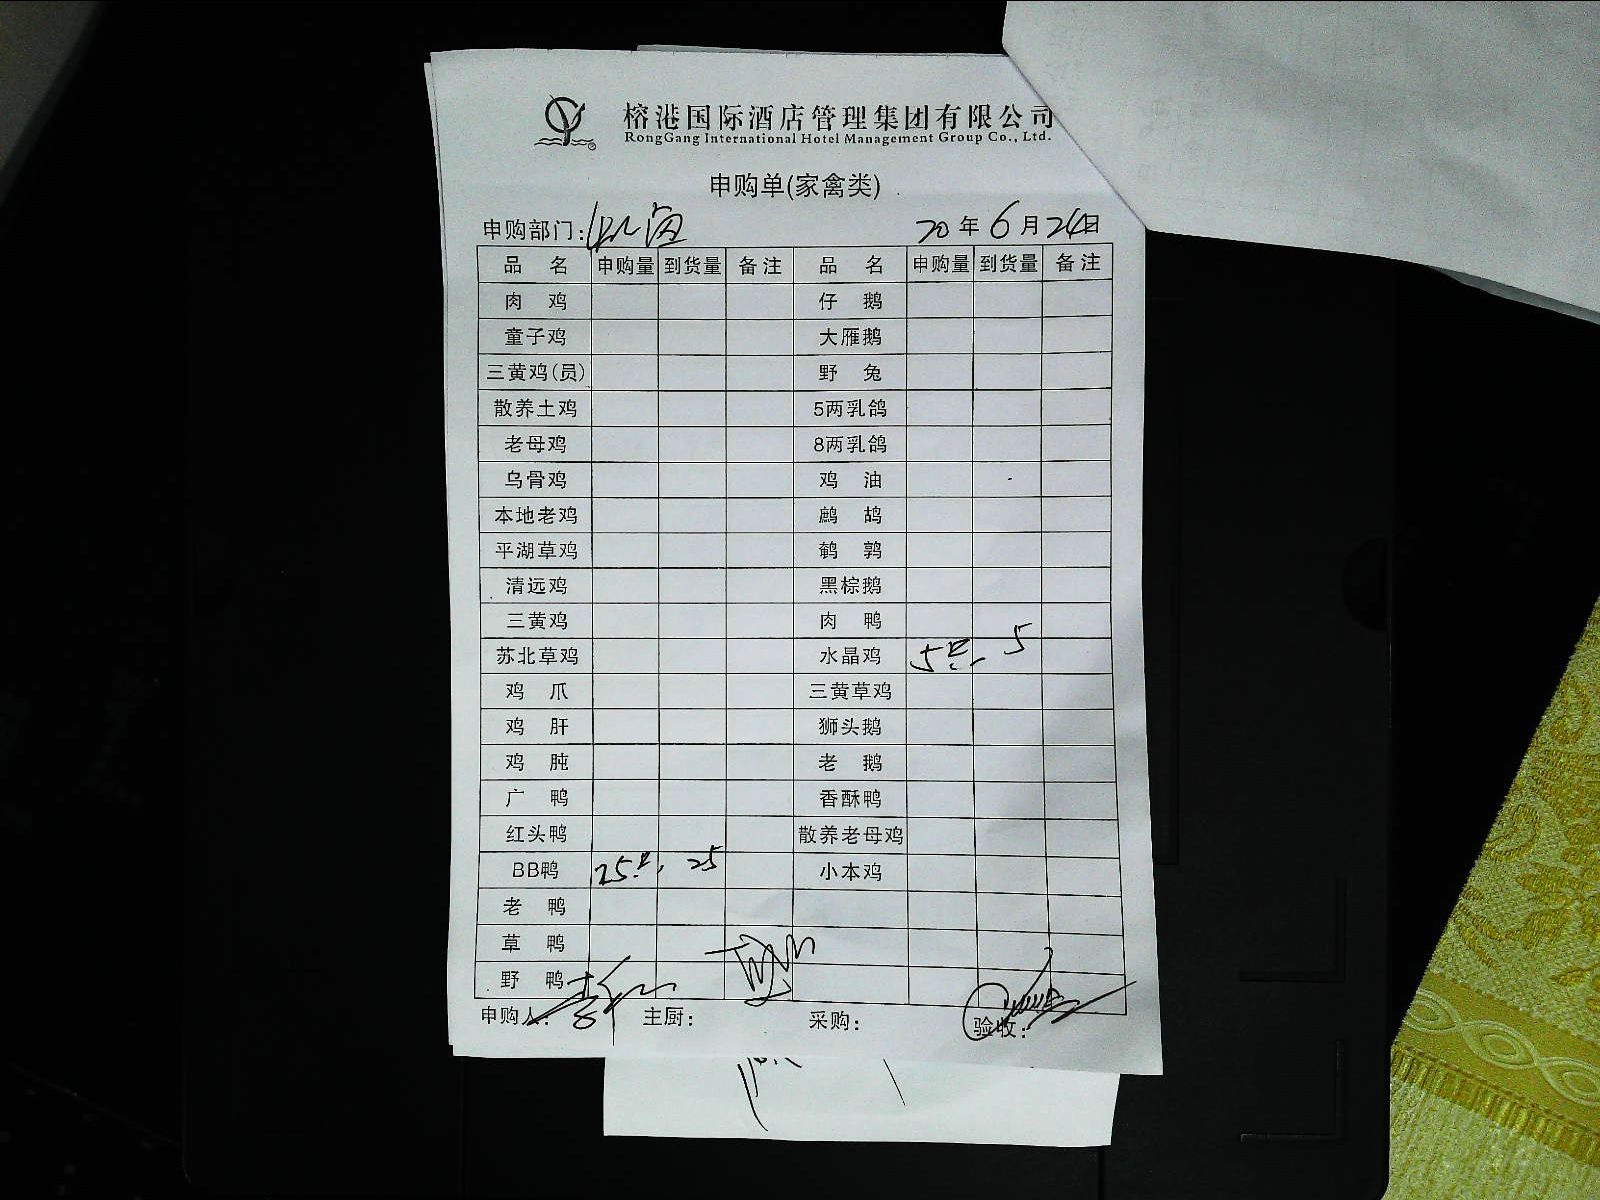 榕港国际酒店管理集团有限公司
RongGang International Hotel Management Group Co., Ltd.
申购单(家禽类)
申购部门: 20年6月24日
品名 申购量 到货量 备注 品名 申购量 到货量 备注
肉鸡 仔鹅
童子鸡 大雁鹅
三黄鸡(员) 野兔
散养土鸡 5两乳鸽
老母鸡 8两乳鸽
乌骨鸡 鸡油
本地老鸡 鹧鸪
平湖草鸡 鹌鹑
清远鸡 黑棕鹅
三黄鸡 肉鸭
苏北草鸡 水晶鸡 5只 5
鸡爪 三黄草鸡
鸡肝 狮头鹅
鸡肫 老鹅
广鸭 香酥鸭
红头鸭 散养老母鸡
BB鸭 25只 25 小本鸡
老鸭
草鸭
野鸭
申购人: 主厨: 采购: 验收: